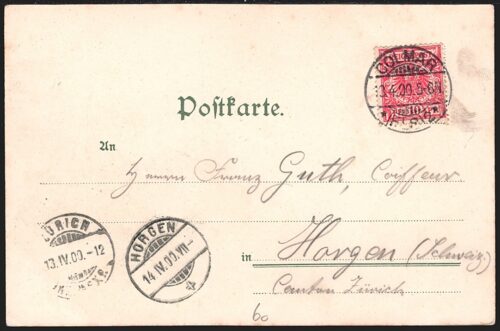 COLMAR
13.4.00.5-6N
* (ELS.) *
10
Postkarte.
An
Herrn Franz Guth, Coiffeur
in Horgen (Schweiz)
Canton Zürich
ZÜRICH
13.IV.00.-12
HORGEN
14.IV.00.VII-
60